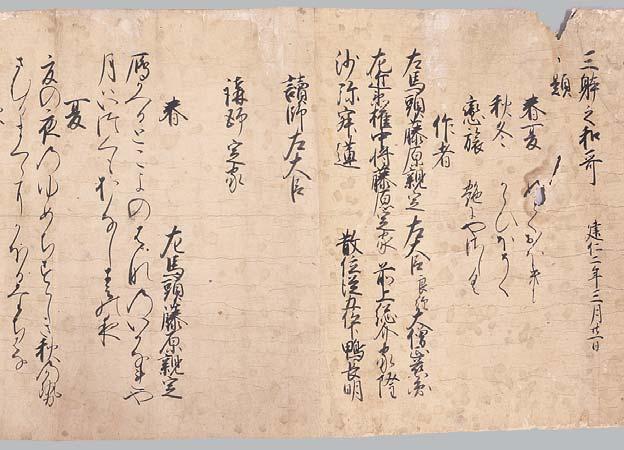 三躰之和哥　建仁二年三月廿二日
題
春夏　ふとくおほきに
秋冬　からひほそく
戀旅　艶にやさしく
作者
左馬頭藤原親定　左大臣良経　大僧正慈圓
左近権中将藤原定家　前上総介家隆
沙弥寂蓮　散位従五位下鴨長明
讀師　左大臣
講師　定家
春　左馬頭藤原親定
雁かへるとこよのはなのいかなれや
月はいつくもおなしはるの夜
夏
夏の夜のゆめちすゝしき秋の風
さむるまくらにかほるたちはな